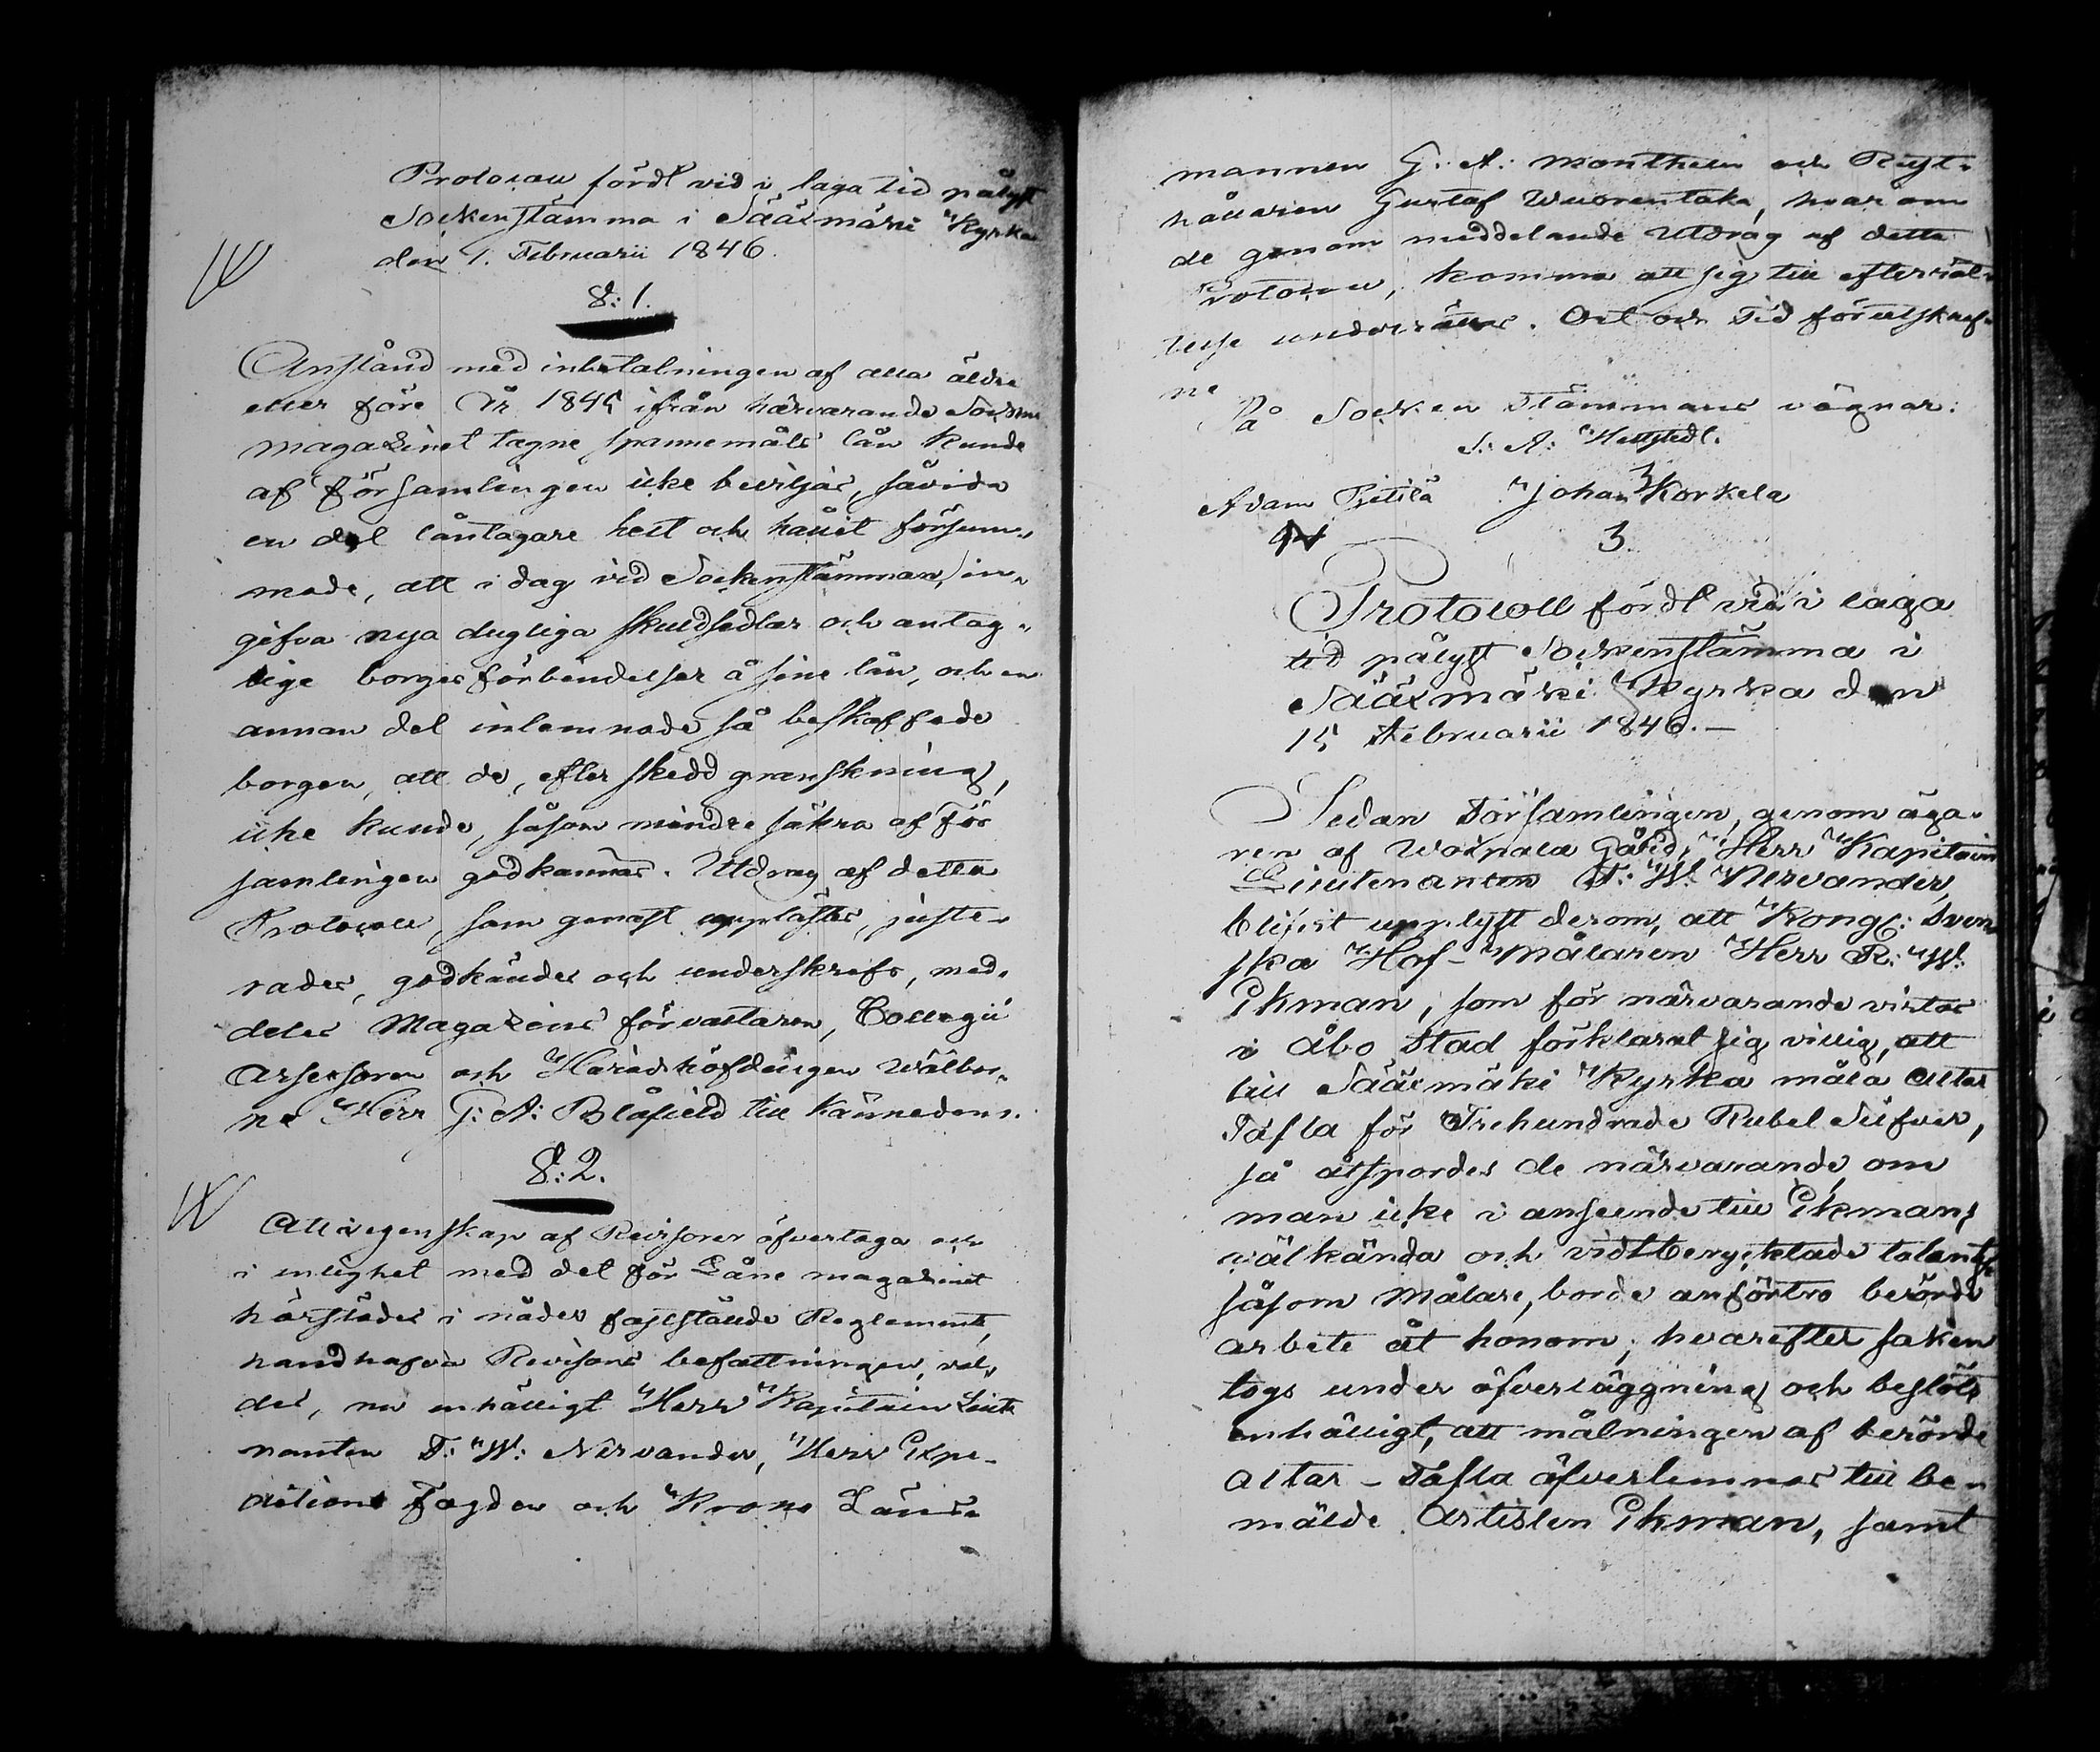 Protocoll fördt vid i laga tid pålyst
Sockenstämma i Sääxmäki Kyrka
den 1. Februarii 1846.
§:1.
Anstånd med inbetalningen af alla äldre
eller före År 1845 ifrån härvarande Sockne
magazinet tagne spannemåls lån kunde
af Församlingen icke beviljas, såvida
en del låntagare helt och hållit försum„
made, att i dag vid Sockenstämman, in„
gifva nya dugliga skuldsedlar och antag„
lige borgesförbindelser å sine lån, och en
annan del inlemnade så beskaffade
borgen, att de, efter skedd granskning,
icke kunde, såsom mindre säkra af För
samlingen godkännas. Utdrag af detta
Protocoll, som genast upplästes, juste„
rades, godkändes och underskrefs, med„
deles Magazins förvaltaren, Collegii
Assessoren och Häradshöfdingen Wälbor„
ne Herr G: A: Blåfield till kännedom.
§:2.
Att i egenskap af Revisorer öfvertaga och
i enlighet med det för Låne magazinet
härstädes i nåder fastställde Reglemente,
handhafva Revisors befattningen, val„
des, nu enhälligt Herr Kapitain Lieute
nanten F: W: Nervander, Herr Expe-
ditions Fogden och Krono Läns„
mannen G: A: Monthell och Ryt„
hållaren Gustaf Wuorentaka, hvarom
de genom meddelande Utdrag af detta
Protocoll, komma att sig till efterrät„
telse underrättas. Ort och Tid förutskref„
ne
På Socken Stämmans vägnar:
J: A: Hellstedt.
Adam Pitilä Johan Korkela
3.
Protocoll fördt vid i laga
tid pålyst Sockenstämma i
Sääxmäki Kyrka den
15 Februarii 1846.—
Sedan Församlingen, genom äga„
ren af Woipala Gård, Herr Kapitain
Lieutenanten F: W: Nervander,
blifvit upplyst derom, att Kongl: Sven
ska Hof-Målaren Herr R: W:
Ekman, som för närvarande vistas
i Åbo Stad förklarat sig villig, att
till Sääxmäki Kyrka måla Altar
Tafla för Trehundrade Rubel Silfver,
så åtspordes de närvarande, om
man icke i anseende till Ekmans
välkända och vidtberycktade talent
såsom Målare, borde anförtro berörde
arbete åt honom; hvarefter saken
togs under öfverläggning och beslöts
enhälligt, att målningen af berörde
Altar-Tafla öfverlemnas till be„
mälde Artisten Ekman, samt